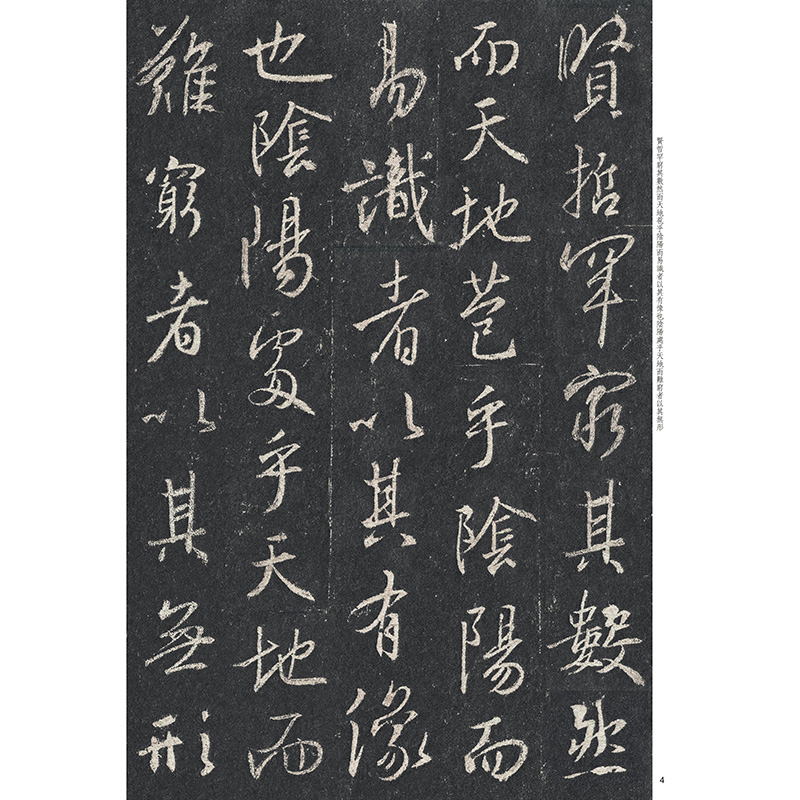 賢哲罕窮其數然
而天地苞乎陰陽而
易識者以其有像
也陰陽處乎天地而
難窮者以其無形
賢哲罕窮其數然而天地苞乎陰陽而易識者以其有像也陰陽處乎天地而難窮者以其無形
4